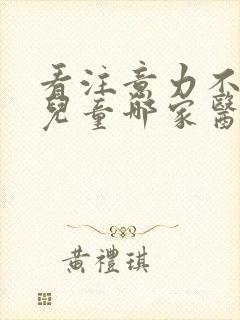 看注意力不
兒童哪家醫
黃禮琪